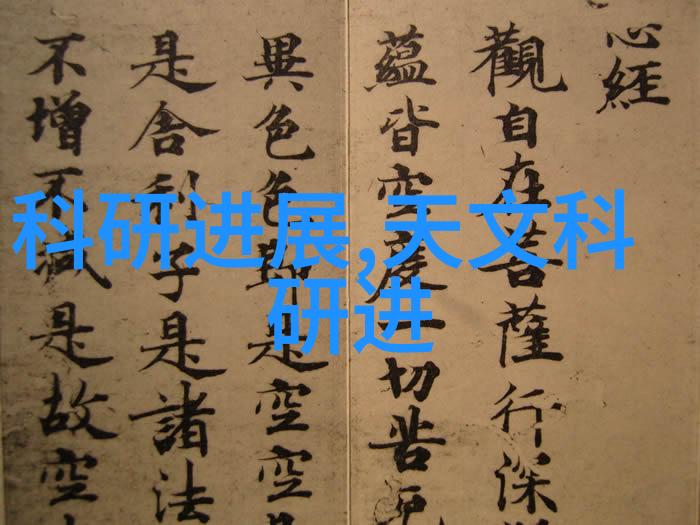 心經
觀自在菩薩行深
蘊皆空度一切苦厄
異色色即是空空
是舍利子是諸法
不增不減是故空
科研进展,天文科
研进